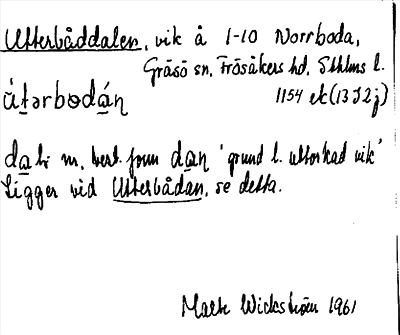 Utterbåddalen, vik å 1-10 Norrboda,
Gräsö sn, Frösåkers hd, Sthlms l.
1154 ek (13I2j)
ŭ́tərbodán
dal m, best. form dan 'grund l. uttorkad vik'
Ligger vid Utterbådan, se detta.
Malte Wickström 1961